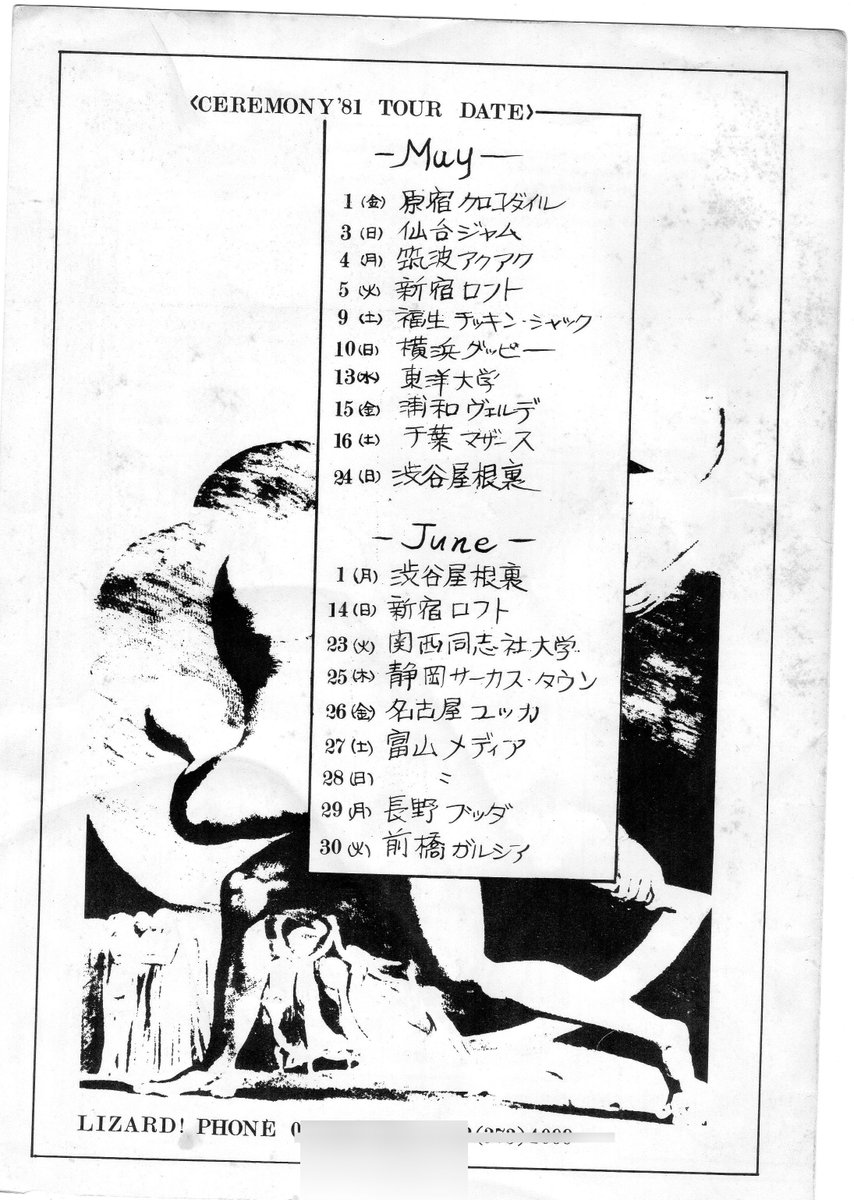 〈CEREMONY'81 TOUR DATE〉
-May-
1(金) 原宿クロコダイル
3(日) 仙台ジャム
4(月) 筑波アクアク
5(火) 新宿ロフト
9(土) 福生チッキン・シャック
10(日) 横浜グッピー
13(水) 東洋大学
15(金) 浦和ヴェルデ
16(土) 千葉マザース
24(日) 渋谷屋根裏
-June-
1(月) 渋谷屋根裏
14(日) 新宿ロフト
23(火) 関西同志社大学
25(木) 静岡サーカス・タウン
26(金) 名古屋ユッカ
27(土) 富山メディア
28(日) 〃
29(月) 長野ブッダ
30(火) 前橋ガルシア
LIZARD! PHONE 0